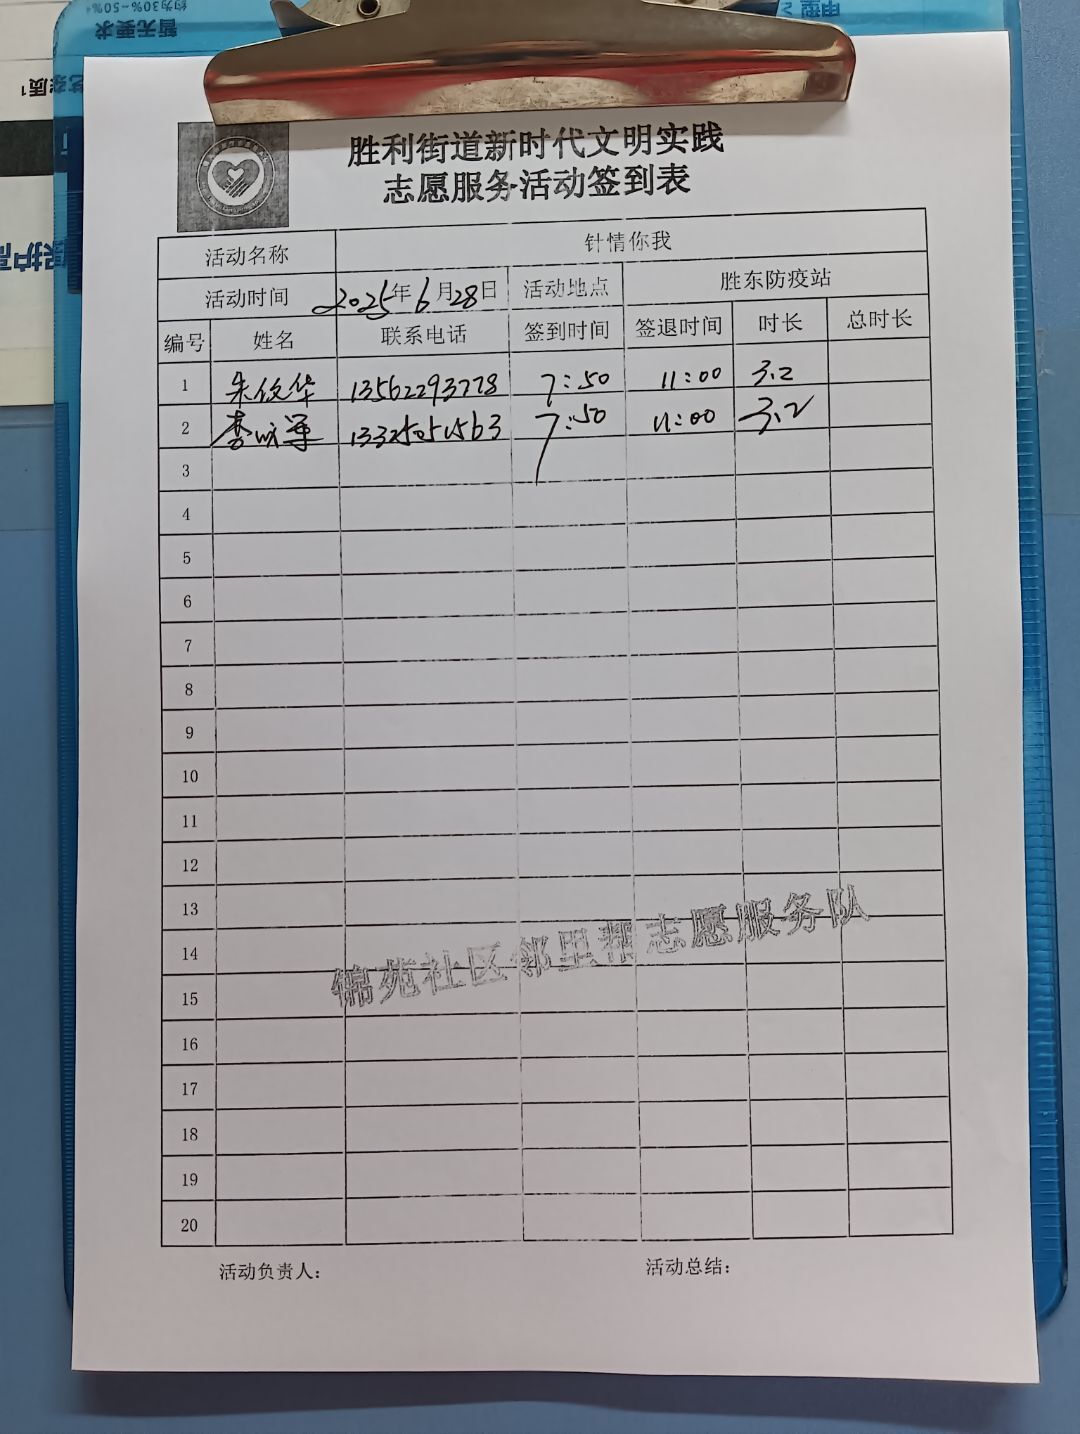 约为30%-50%
暂无要求
甲型
胜利街道新时代文明实践
志愿服务活动签到表
活动名称 针情你我
活动时间 2025年6月28日 活动地点 胜东防疫站
编号 姓名 联系电话 签到时间 签退时间 时长 总时长
1 朱 华 13562293778 7:50 11:00 3.2
2 李 军 7:50 11:00 3.2
3
4
5
6
7
8
9
10
11
12
13
14
15
16
17
18
19
20
锦苑社区邻里帮志愿服务队
活动负责人: 活动总结: